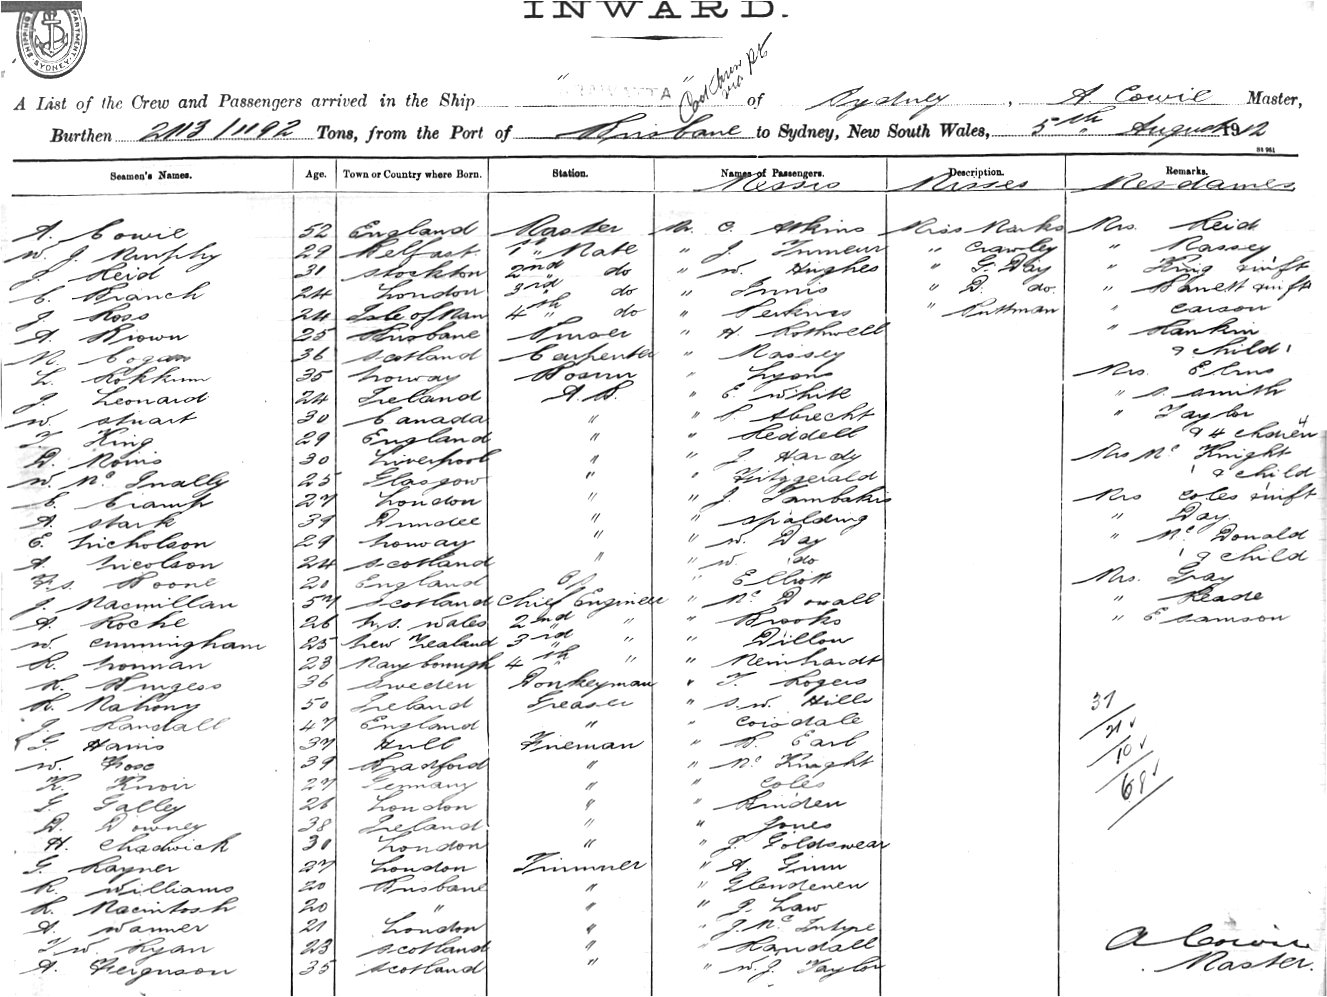 INWARD.
SYDNEY.
A List of the Crew and Passengers arrived in the Ship " " of Sydney, A. Cowie Master,
Burthen 2113/1192 Tons, from the Port of Brisbane to Sydney, New South Wales, 5th August 1912
Seamen's Names. Age. Town or Country where Born. Station. Names of Passengers. Description. Remarks.
Messrs Misses Mesdames
A. Cowie 52 England Master Mr. C. Atkins Miss Marks Mrs. Reid
W. J. Murphy 29 Belfast 1st Mate " J. " Crawley " Massey
J. Reid 31 Stockton 2nd do " W. Hughes " G. Day " King & inft
C. Branch 24 London 3rd do " Innis " D. do. " Barrett & inft
J. Ross 24 Isle of Man 4th do " Perkins " Puttman " Carson
A. Brown 25 Brisbane Purser " H. Rothwell " Rankin
M. Cogan 36 Scotland Carpenter " Massey & child
L. 35 Norway Bosun " Lyons Mrs. Elms
J. Leonard 24 Ireland A.B. " E. White " S. Smith
W. Stuart 30 Canada " " Albrecht " Taylor
T. King 29 England " " Reddell & 4 children 4
D. Morris 30 Liverpool " " J. Hardy Mrs McKnight
W. McInally 25 Glasgow " " Fitzgerald & child
C. Cramp 27 London " " J. Tambakis Mrs Coles & inft
A. Stark 39 Dundee " " Spalding " Day
E. Nicholson 29 Norway " " W. Day " McDonald
A. Nicolson 24 Scotland " " W. do & child
Fs. Boone 20 England O.S. " Elliott Mrs. Gray
J. Macmillan 57 Scotland Chief Engineer " McDowall " Reade
A. Roche 26 N.S. Wales 2nd " " Brooks " E Samson
W. Cunningham 25 New Zealand 3rd " " Dillon
R. Norman 23 Maryborough 4th " " Meinhardt
K. Burgess 36 Sweden Donkeyman " T. Rogers
R. Mahony 50 Ireland Greaser " S. W. Hills 37
J. Randall 47 England " " Coisdale 21
G. Harris 37 Hull Fireman " B. Earl 10
W. Frose 39 Bradford " " McKnight 68
K. Knorr 27 Germany " " Coles
G. Galley 26 London " " Linden
D. Downey 38 Ireland " " Jones
H. Chadwick 30 London " " J. Goldswear
G. Rayner 27 London Trimmer " A. Ginn
R. Williams 20 Brisbane " " Glendenen
R. Macintosh 20 " " " J. Law
A. Warner 21 London " " J. McIntyre
T W. Ryan 23 Scotland " " Randall A Cowie
A. Ferguson 35 Scotland " " W. J. Taylor Master.